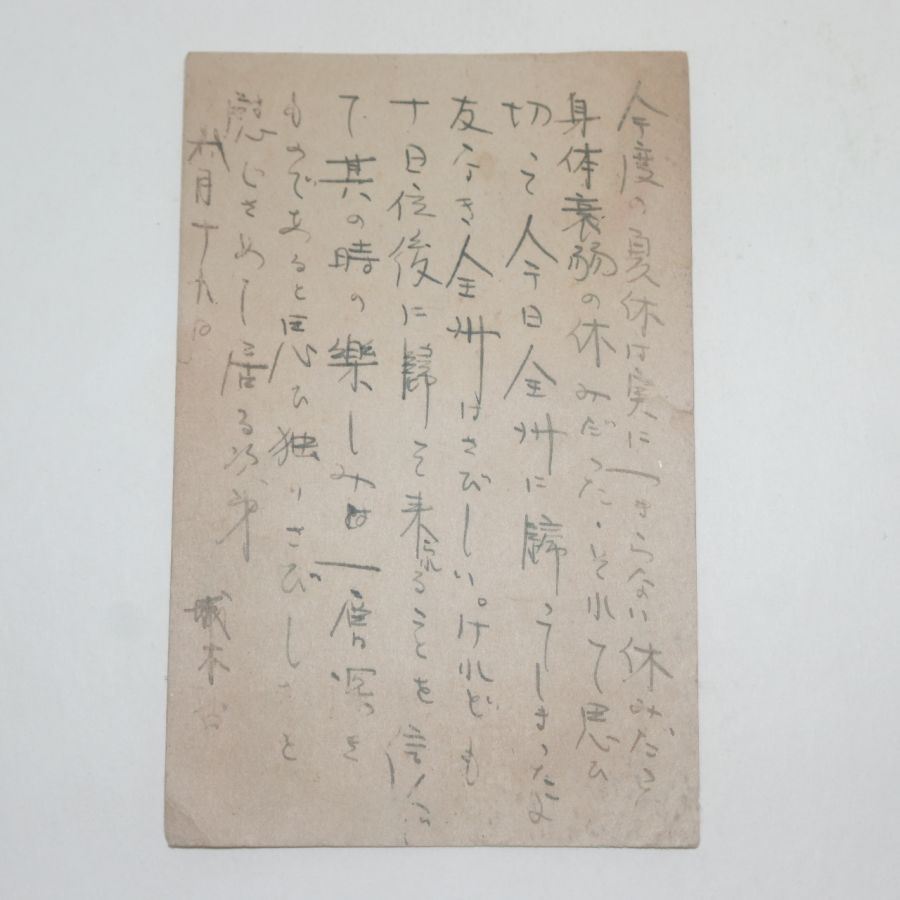 今度の夏休は実につまらない休みだった
身体衰弱の休みだった。それで思ひ
切って今日全州に歸ってしまったよ
友なき全州はさびしい。けれども
十日位後に歸って来られることを信じ
て其の時の樂しみは一層深き
ものであると思ひ独りさびしさを
慰じさめし居る次第
八月十九日
木